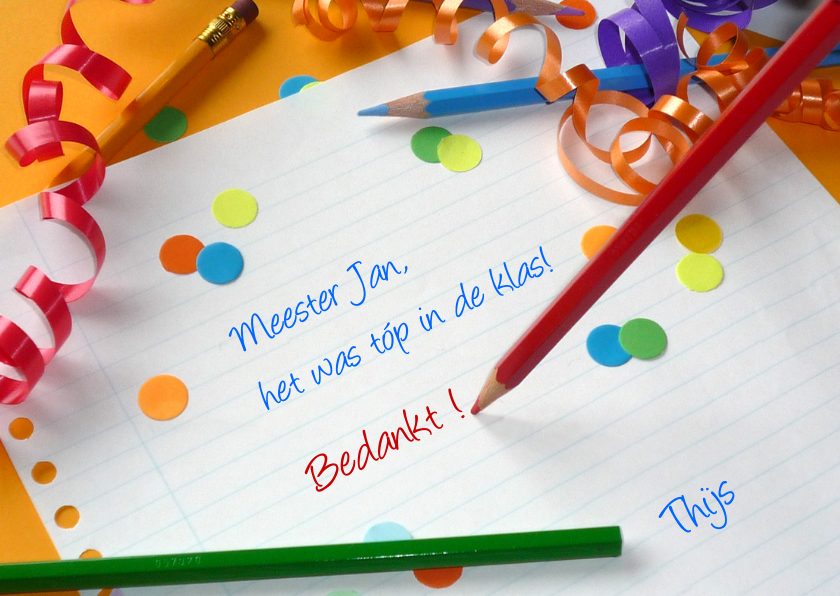 Meester Jan,
het was tóp in de klas!
Bedankt !
Thijs